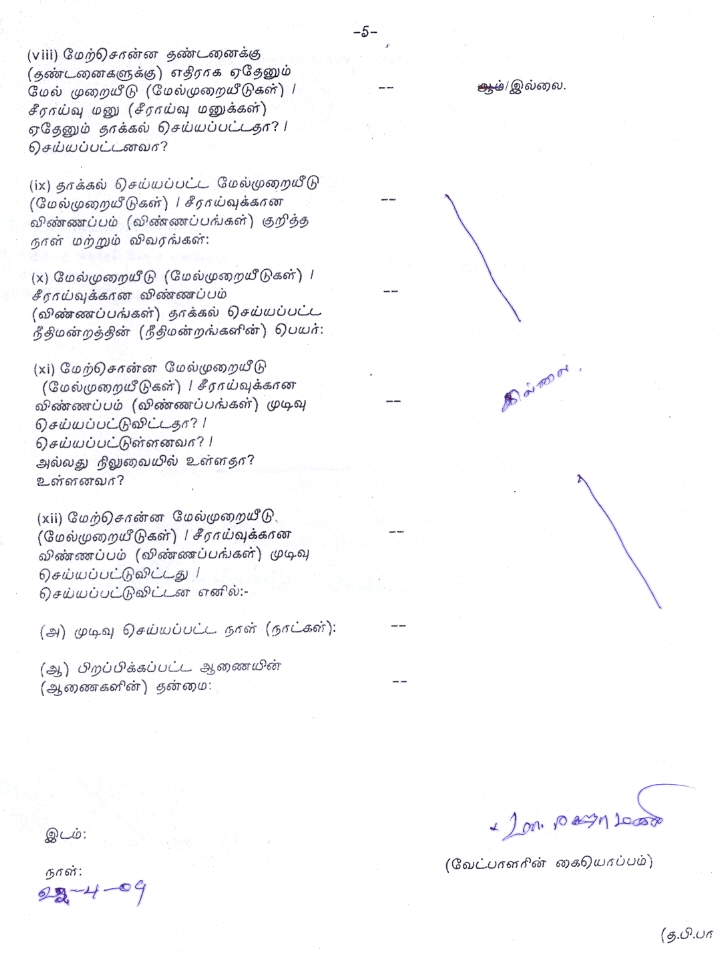 -5-
(viii) மேற்சொன்ன தண்டனைக்கு
(தண்டனைகளுக்கு) எதிராக ஏதேனும்
மேல் முறையீடு (மேல்முறையீடுகள்) / -- ஆம்/இல்லை.
சீராய்வு மனு (சீராய்வு மனுக்கள்)
ஏதேனும் தாக்கல் செய்யப்பட்டதா? /
செய்யப்பட்டனவா?
(ix) தாக்கல் செய்யப்பட்ட மேல்முறையீடு
(மேல்முறையீடுகள்) / சீராய்வுக்கான --
விண்ணப்பம் (விண்ணப்பங்கள்) குறித்த
நாள் மற்றும் விவரங்கள்:
(x) மேல்முறையீடு (மேல்முறையீடுகள்) /
சீராய்வுக்கான விண்ணப்பம் --
(விண்ணப்பங்கள்) தாக்கல் செய்யப்பட்ட
நீதிமன்றத்தின் (நீதிமன்றங்களின்) பெயர்:
(xi) மேற்சொன்ன மேல்முறையீடு
(மேல்முறையீடுகள்) / சீராய்வுக்கான
விண்ணப்பம் (விண்ணப்பங்கள்) முடிவு -- இல்லை.
செய்யப்பட்டுவிட்டதா? /
செய்யப்பட்டுள்ளனவா? /
அல்லது நிலுவையில் உள்ளதா?
உள்ளனவா?
(xii) மேற்சொன்ன மேல்முறையீடு
(மேல்முறையீடுகள்) / சீராய்வுக்கான --
விண்ணப்பம் (விண்ணப்பங்கள்) முடிவு
செய்யப்பட்டுவிட்டது /
செய்யப்பட்டுவிட்டன எனில்:-
(அ) முடிவு செய்யப்பட்ட நாள் (நாட்கள்): --
(ஆ) பிறப்பிக்கப்பட்ட ஆணையின்
(ஆணைகளின்) தன்மை: --
இடம்:
(வேட்பாளரின் கையொப்பம்)
நாள்:
-4-09
(த.பி.பா